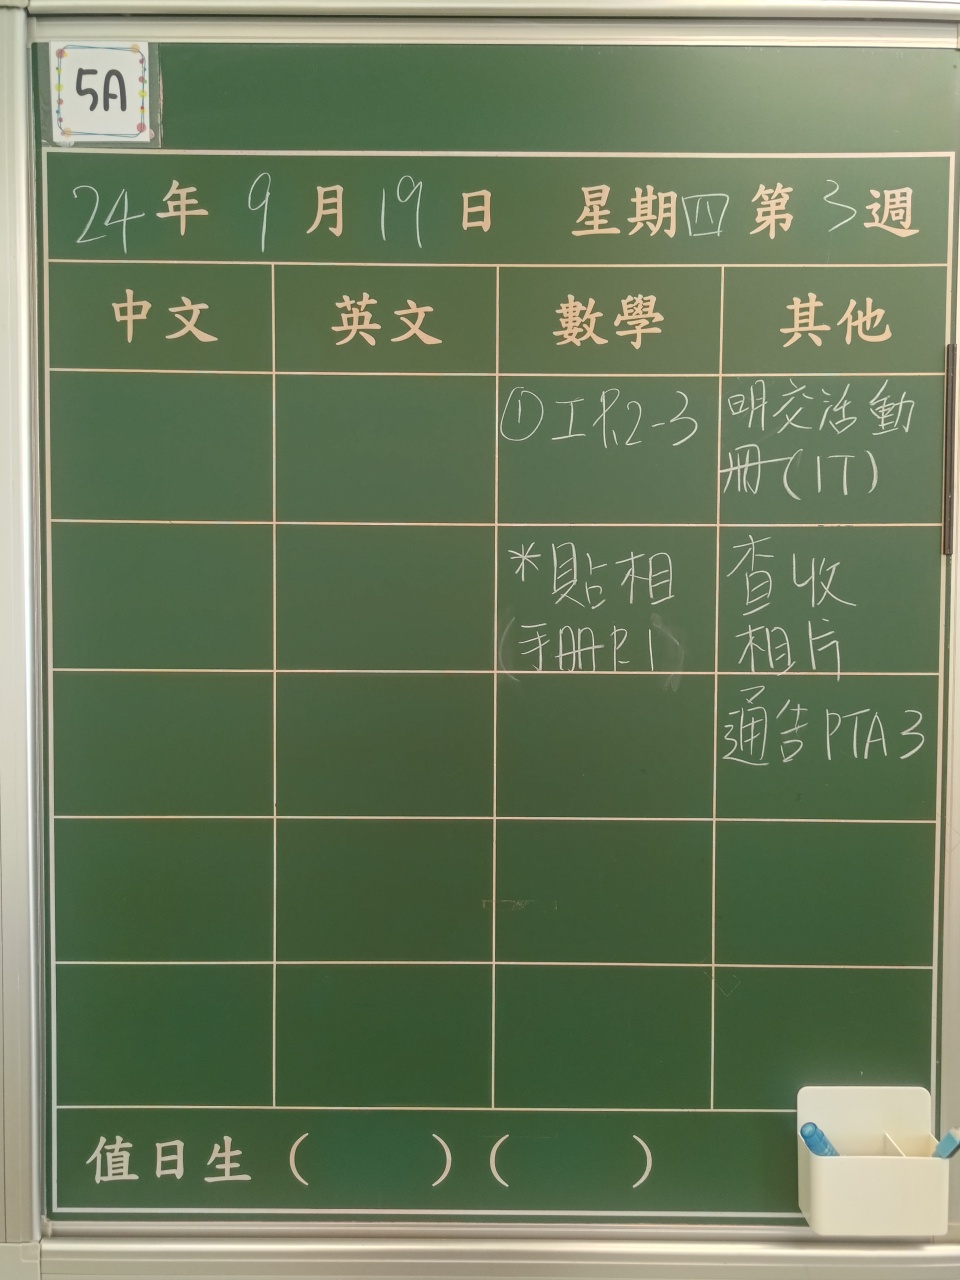 5A
24年9月19日 星期四 第3週
中文 英文 數學 其他
①工P.2-3
明交活動
冊(IT)
*貼相
(手冊P.1)
查收
相片
通告PTA3
值日生( )( )